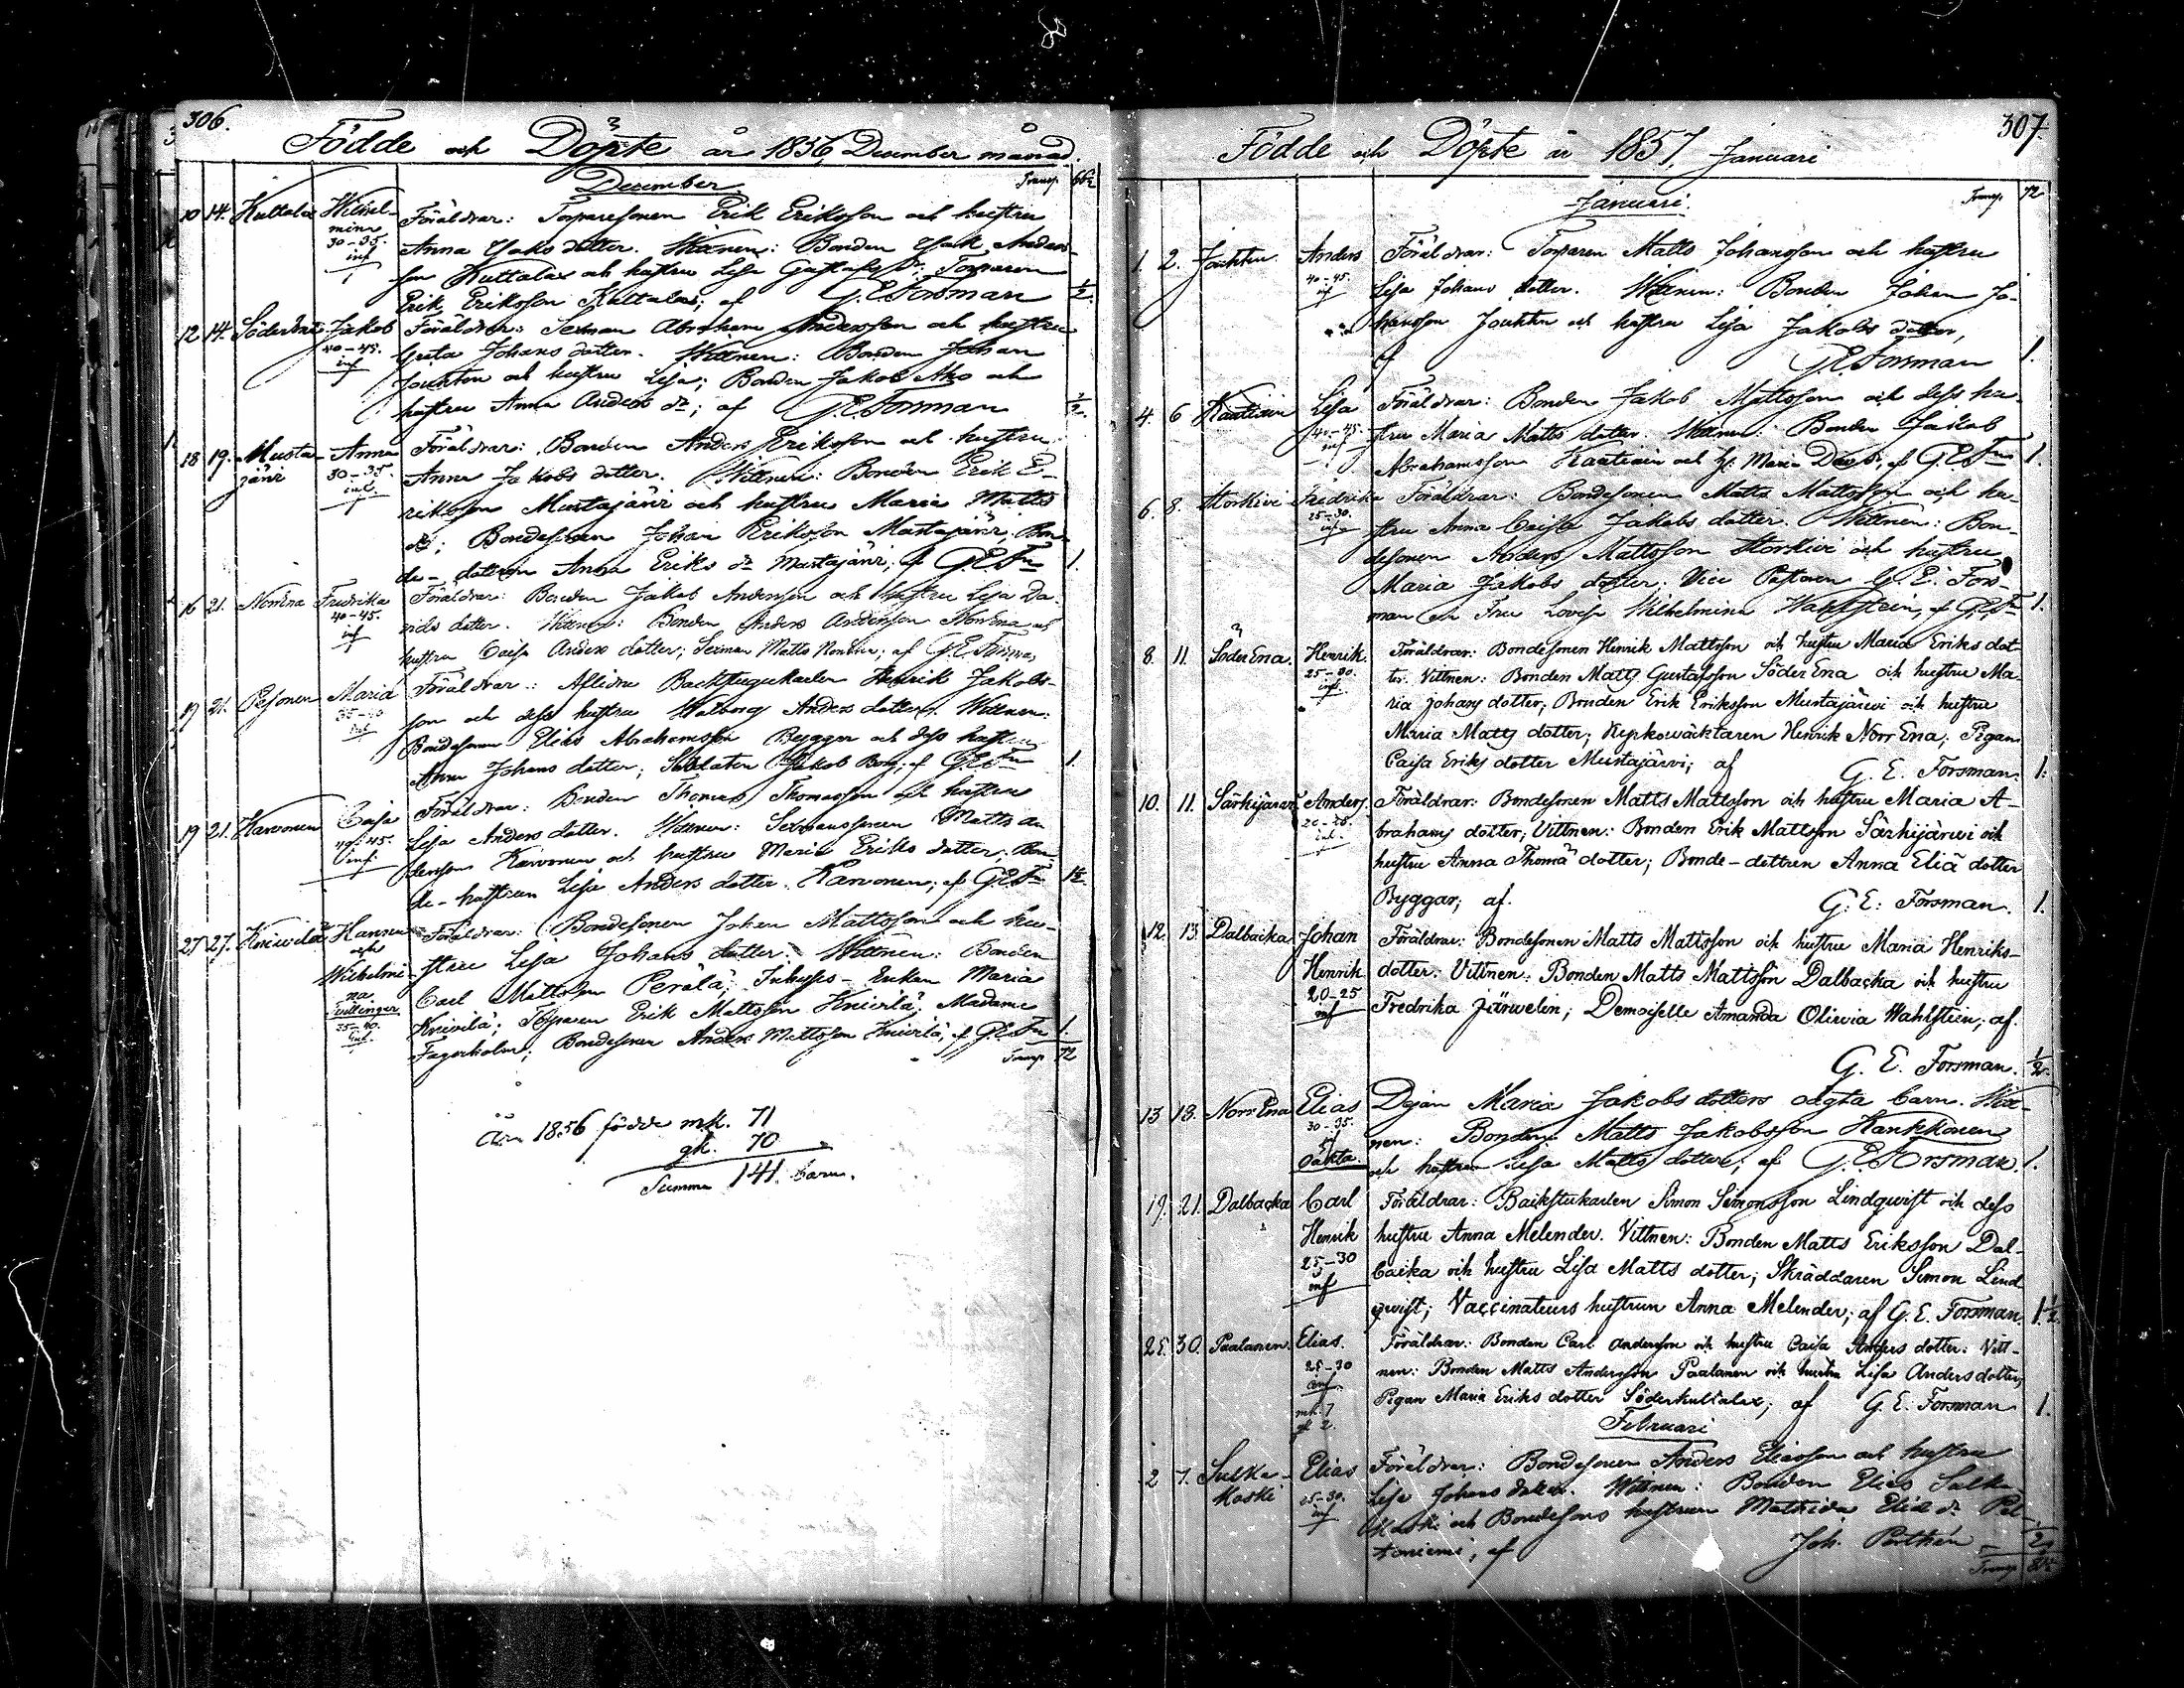 306.
Födde och Döpte år 1856, December månad.
December
Transp. 66½
10 14. Kultalax Wilhel- Föräldrar: Torparesonen Erik Eriksson och hustru
mina Anna Isaks dotter. Wittnen: Bonden Isak Anders-
30-35. son Kultalax och hustru Lisa Gustafs dr; Torparen
inf Erik Eriksson Kultalax; af G. E. Forsman ½.
12 14. Jakob Föräldrar: Sexman Abraham Andersson och hustru
40-45. Greta Johans dotter. Wittnen: Bonden Johan
inf Jouhten och hustru Lisa; Bonden Jakob Aho och
hustru Anna Anders dr; af G. E. Forsman ½.
18 19. Musta- Anna Föräldrar: Bonden Anders Eriksson och hustru
järvi 30-35. Anna Jakobs dotter. Wittnen: Bonden Erik E-
inf. riksson Mustajärvi och hustru Maria Matts
dr; Bondesonen Johan Eriksson Mustajärvi, Bon-
de-dottren Anna Eriks dr Mustajärvi; af G. E. Fn 1.
16 21. Norrena Fredrika Föräldrar: Bonden Jakob Andersson och hustru Lisa Da-
40-45. vids dotter. Wittnen: Bonden Anders Andersson Norrena och
inf hustru Caisa Anders dotter; Sexman Matts; af G. E. Forsman
19 21. Pesonen Maria Föräldrar: Aflidne Backstugukarlen Henrik Jakobs-
35-40 son och dess hustru Walborg Anders dotter. Wittnen:
inf Bondesonen Elias Abrahamsson Byggar och dess hustru
Anna Johans dotter; Soldaten Jakob Borg; af G. E. Fn 1.
19 21. Karvonen Caisa Föräldrar: Bonden Thomas Thomasson och hustru
40-45. Lisa Anders dotter. Wittnen: Sexmanssonen Matts An-
inf. dersson Karvonen och hustru Maria Eriks dotter; Bon-
de-hustrun Lisa Anders dotter Karvonen; af G. E. Fn 1½.
27 27. Knivilä Hanna Föräldrar: Bondesonen Johan Mattsson och hu-
och stru Lisa Johans dotter. Wittnen: Bonden
Wilhelmi- Carl Mattsson Perälä; Inhyses-Enkan Maria
na. Knivilä; Torparen Erik Mattsson Knivilä; Madame
tvillingar Fagerholm; Bondesonen Anders Mattsson Knivilä; af G. E. Fn 1.
35-40.
inf.
Transp 72
År 1856 födde mk. 71
qk. 70
Summa 141 barn.
307.
Födde och Döpte år 1857, Januari
Januari.
Transp. 72
1. 2. Jouhten Anders Föräldrar: Torparen Matts Johansson och hustru
40-45. Lisa Johans dotter. Wittnen: Bonden Johan Jo-
inf hansson Jouhten och hustru Lisa Jakobs dotter,
af G. E. Forsman 1.
4. 6 Kaatiain Lisa Föräldrar: Bonden Jakob Mattsson och dess hu-
40-45. stru Maria Matts dotter. Wittnen: Bonden Jakob
inf Abrahamsson Kaatiain och h. Maria Davids; af G. E. Fn 1.
6. 8. Storkivi Fredrika Föräldrar: Bondesonen Matts Mattsson och hu-
25-30. stru Anna Caisa Jakobs dotter. Wittnen: Bon-
inf desonen Anders Mattsson Storkivi och hustru
Maria Jakobs dotter; Vice Pastoren G. E. Fors-
man och Fru Lovisa Wilhelmina Wahlstein; af G. E. Fn 1.
8. 11. Söder Ena. Henrik. Föräldrar: Bondesonen Hinrik Mattsson och hustru Maria Eriks dot-
25-30. ter. Vittnen: Bonden Matts Gustafsson Söder Ena och hustru Ma-
inf. ria Johans dotter; Bonden Erik Eriksson Mustajärwi och hustru
Maria Matts dotter; Kyrkowäktaren Henrik Norr Ena; Pigan
Caisa Eriks dotter Mustajärwi; af G. E. Forsman. 1.
10. 11. Särkijärwi Anders. Föräldrar: Bondesonen Matts Mattsson och hustru Maria A-
20-25. brahams dotter; Vittnen: Bonden Erik Mattsson Särkijärwi och
inf. hustru Anna Thomä dotter; Bonde-dottren Anna Eliä dotter
Byggar; af. G. E. Forsman. 1.
12. 13. Dalbacka Johan Föräldrar: Bondesonen Matts Mattsson och hustru Maria Henriks-
Henrik dotter. Vittnen: Bonden Matts Mattsson Dalbacka och hustru
20-25 Fredrika Järwelin; Demoiselle Amanda Oliwia Wahlstein; af.
inf
G. E. Forsman. ½.
13 18. Norr Ena Elias Dejan Maria Jakobs dotters oägta barn. Witt-
30-35. nen: Bonden Matts Jakobsson Hankkonen
inf
oäkta. och hustru Lisa Matts dotter; af G. E. Forsman. 1.
19. 21. Dalbacka Carl Föräldrar: Backstukarlen Simon Simonsson Lindqwist och dess
Henrik hustru Anna Melender. Vittnen: Bonden Matts Eriksson Dal-
25-30 backa och hustru Lisa Matts dotter; Skräddaren Simon Lind-
inf qwist; Vaccinateurs hustrun Anna Melender; af G. E. Forsman. 1½.
25. 30. Paalanen. Elias. Föräldrar: Bonden Carl Andersson och hustru Caisa Anders dotter. Vitt-
25-30 nen: Bonden Matts Andersson Paalanen och hustru Lisa Anders dotter;
inf. Pigan Maria Eriks dotter Söderkultalax; af G. E. Forsman 1.
mk. 7
qk 2.
Februari
2 7. Sulka- Elias Föräldrar: Bondesonen Anders Eliasson och hustru
koski 25-30. Lisa Johans dotter. Wittnen: Bonden Elias Sulka-
inf koski och Bondesons hustrun Mathilda Eliä dr Pel-
toniemi, af Joh. Perthén ½
Transp